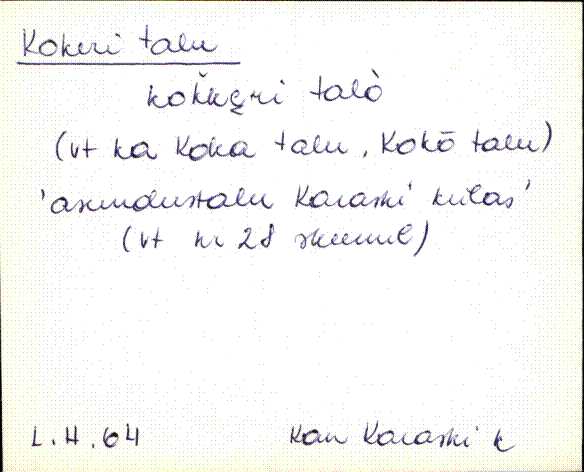 Kokeri talu
kok̆kęri talò
(vt ka Koka talu, Kokõ talu)
'asundustalu Karaski külas'
(vt nr 28 skeemil)
L.H.64
Kan Karaski k